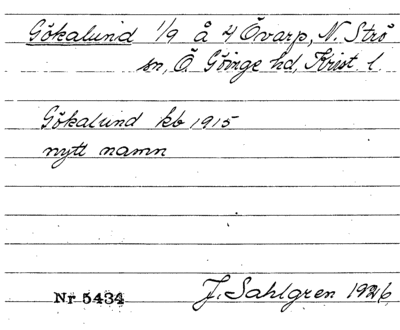 Gökalund 1/9 å 4 Övarp, N. Strö
sn, Ö. Göinge hd, Krist l
Gökalund kb 1915
nytt namn
Nr 5434 J. Sahlgren 1926